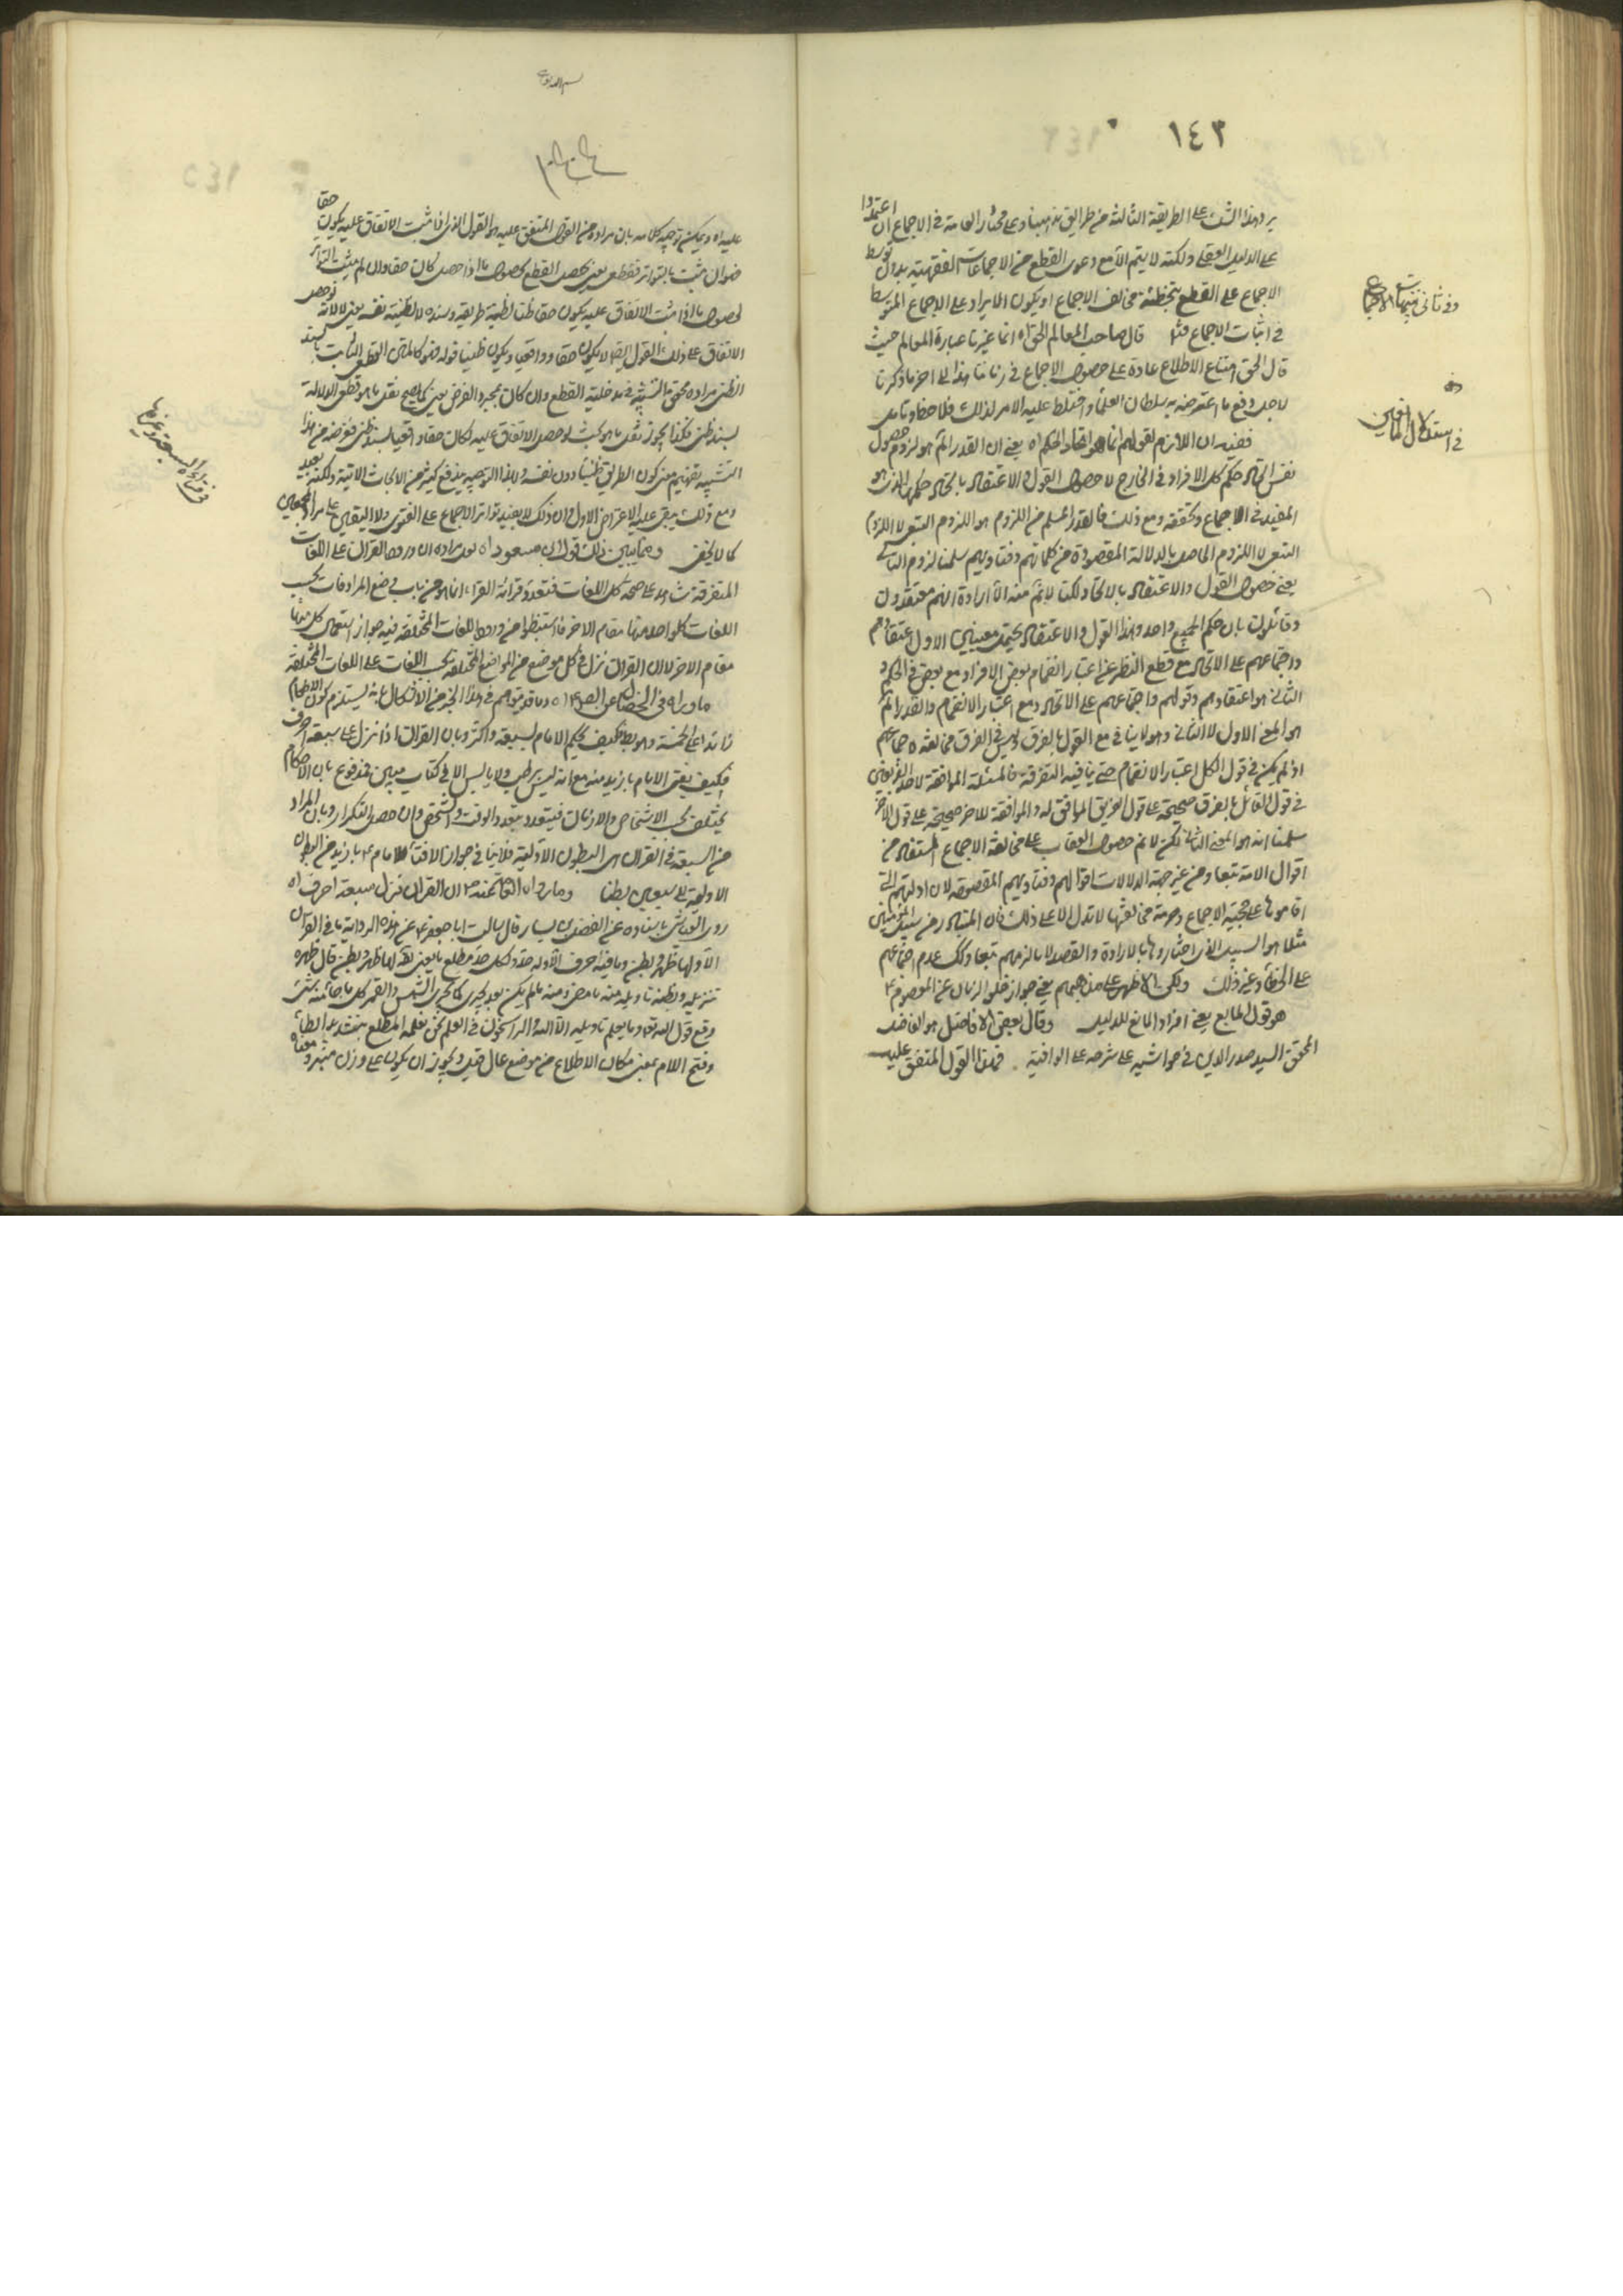 ١٤٣
يرد هذا الشك على الطريقة الثالثة من طرايق مذهبنا وعلى مختار العامة في الاجماع ان اعتمدوا
على الدليل العقلي ولكنه لا يتم الا مع دعوى القطع من الاجماعات الفقهية بدون توسط
الاجماع على القطع بتخطئة مخالف الاجماع او يكون الايراد على الاجماع المتوسط
في اثبات الاجماع قال صاحب المعالم الحق اه انما غيرنا عبارة المعالم حيث
قال الحق امتناع الاطلاع عادة على حصول الاجماع في زماننا هذا الى اخر ما ذكرنا
لاجل دفع ما اعترضه به سلطان العلماء واختلط عليه الامر لذلك فلاحظ وتامل
ففيه ان اللازم لقولهم انما هو اتحاد الحكم اه يعني ان القدر المسلم هو لزوم حصول
نفس اتحاد حكم كل الافراد في الخارج لا حصول القول والاعتقاد باتحاد حكمها الذي هو
المفيد في الاجماع وتحققه ومع ذلك فالقدر المسلم من اللزوم هو اللزوم التبعي لا اللزوم
التبعي لا اللزوم الحاصل بالدلالة المقصودة من كلماتهم وفتاويهم سلمنا لزوم الثاني
يعني حصول القول والاعتقاد بالاتحاد لكنا لا نم منه الا ارادة انهم معتقدون
وقائلون بان حكم الجميع واحد وهذا القول والاعتقاد يحتمل معنيين الاول اعتقادهم
واجتماعهم على الاتحاد مع قطع النظر عن اعتبار انضمام بعض الافراد مع بعض في الحكم و
الثاني هو اعتقادهم وقولهم واجتماعهم على الاتحاد مع اعتبار الانضمام والقدر المسلم
هو المعنى الاول لا الثاني وهو لا ينافي مع القول بالفرق وليس في الفرق مخالفة اجماعهم
اذ لم يكن في قول الكل اعتبار الانضمام حتى ينافيه التفرقة فالمسئلة الموافقة لاحد الفريقين
في قول القائل بالفرق صحيحة على قول الفريق الموافق له والموافقة للاخر صحيحة على قول الاخر
سلمنا انه هو المعنى الثاني لكن لا نم حصول العقاب على مخالفة الاجماع المستفاد من
اقوال الامة تبعا ومن غير جهة الدلالات اقوالهم وفتاويهم المقصودة لان ادلتهم التي
اقاموها على حجية الاجماع وحرمة مخالفتها لا تدل الا على ذلك فان المتبادر من سبيل المؤمنين
مثلا هو السبيل الذي اختاروها بالارادة والقصد لا ما لزمهم تبعا وكذلك عدم اجتماعهم
على الخطأ وغير ذلك ولكن الاظهر على مذهبهم يعني جواز خلو الزمان عن المعصوم ع
هو قول المانع يعني افراد المانع للدليل وقال بعض الافاضل هو الفاضل
المحقق السيد صدر الدين في حواشيه على شرحه على الوافية فهذا القول المتفق عليه
في استدلال المانعين
عليه اه ويمكن توجيه كلامه بان مراده من القول المتفق عليه هو القول الذي اذا ثبت الاتفاق عليه يكون حقا
فهو ان ثبت بالتواتر فقطعي يعني يحصل القطع بحصول ما اذا حصل كان حقا وان لم يثبت التواتر
الاتفاق على ذلك القول ايضا لا يكون حقا وواقعيا ويكون ظنيا قوله فهو كالمتن القطعي الثابت بسند
الظني مراده محض التشبيه في مدخلية القطع وان كان بمجرد الفرض يعني كما يصح نقل ما هو قطعي الدلالة
بسند ظني فكذا يجوز نقل ما هو بحيث لو حصل الاتفاق عليه لكان حقا واقعيا بسند ظني فغرضه من هذا
التشبيه تفهيم معنى كون الطريق ظنيا دون نفسه وبهذا التوجيه يندفع كثير من الابحاث الاتية ولكنه بعيد
ومع ذلك يبقى عليه الاعتراض الاول وان ذلك لا يفيد تواتر الاجماع على الفتوى ولا اليقين على مراد المجمعين
كما لا يخفى ومما يبين ذلك قول ابن مسعود اه لعل مراده ان ورود القران على اللغات
المتفرقة شاهد على صحة كل اللغات فتعدد قرائة القراء انما هو من باب وضع المرادفات بحسب
اللغات كل واحد منها مقام الاخر فاستنبطوا من ورود اللغات المختلفة فيه جواز استعمال كل منها
مقام الاخر لان القران نزل في كل موضع من المواضع المختلفة بحسب اللغات على اللغات المختلفة
ما رواه في الخصال عن الصادق ع اه وما قد يتوهم في هذا الخبر من الاشكال بانه يستلزم كون الاحكام
زائدا على الخمسة وهو باطل فكيف يحكم الامام بسبعة واكثر وبان القران اذا نزل على سبعة احرف
فكيف يفتي الامام بازيد منه مع انه ليس رطب ولا يابس الا في كتاب مبين فمدفوع بان الاحكام
يختلف بحسب الاشخاص والازمان فيتعدد بتعدد الوقت والشخص وان حصل التكرار وبان المراد
من السبعة في القران هي البطون الاولية فلا ينافي جواز الافتاء للامام ع بازيد من البطون
الاولية الى سبعين بطنا وما رواه العامة عنه ص ان القران نزل بسبعة احرف اه
روى العياشي باسناده عن الفضيل بن يسار قال سالت ابا جعفر ع عن هذه الرواية ما في القران
الا ولها ظهر وبطن وما فيه احرف الا وله حد ولكل حد مطلع ما يعني بقوله لها ظهر وبطن قال ظهره
تنزيله وبطنه تاويله منه ما مضى ومنه ما لم يكن بعد يجري كما يجري الشمس والقمر كل ما جاء منه شيء
وقع قول الله تعالى وما يعلم تاويله الا الله والراسخون في العلم نحن نعلمه المطلع بتشديد الطاء
وفتح اللام بمعنى مكان الاطلاع من موضع عال قيل ويجوز ان يكون على وزن